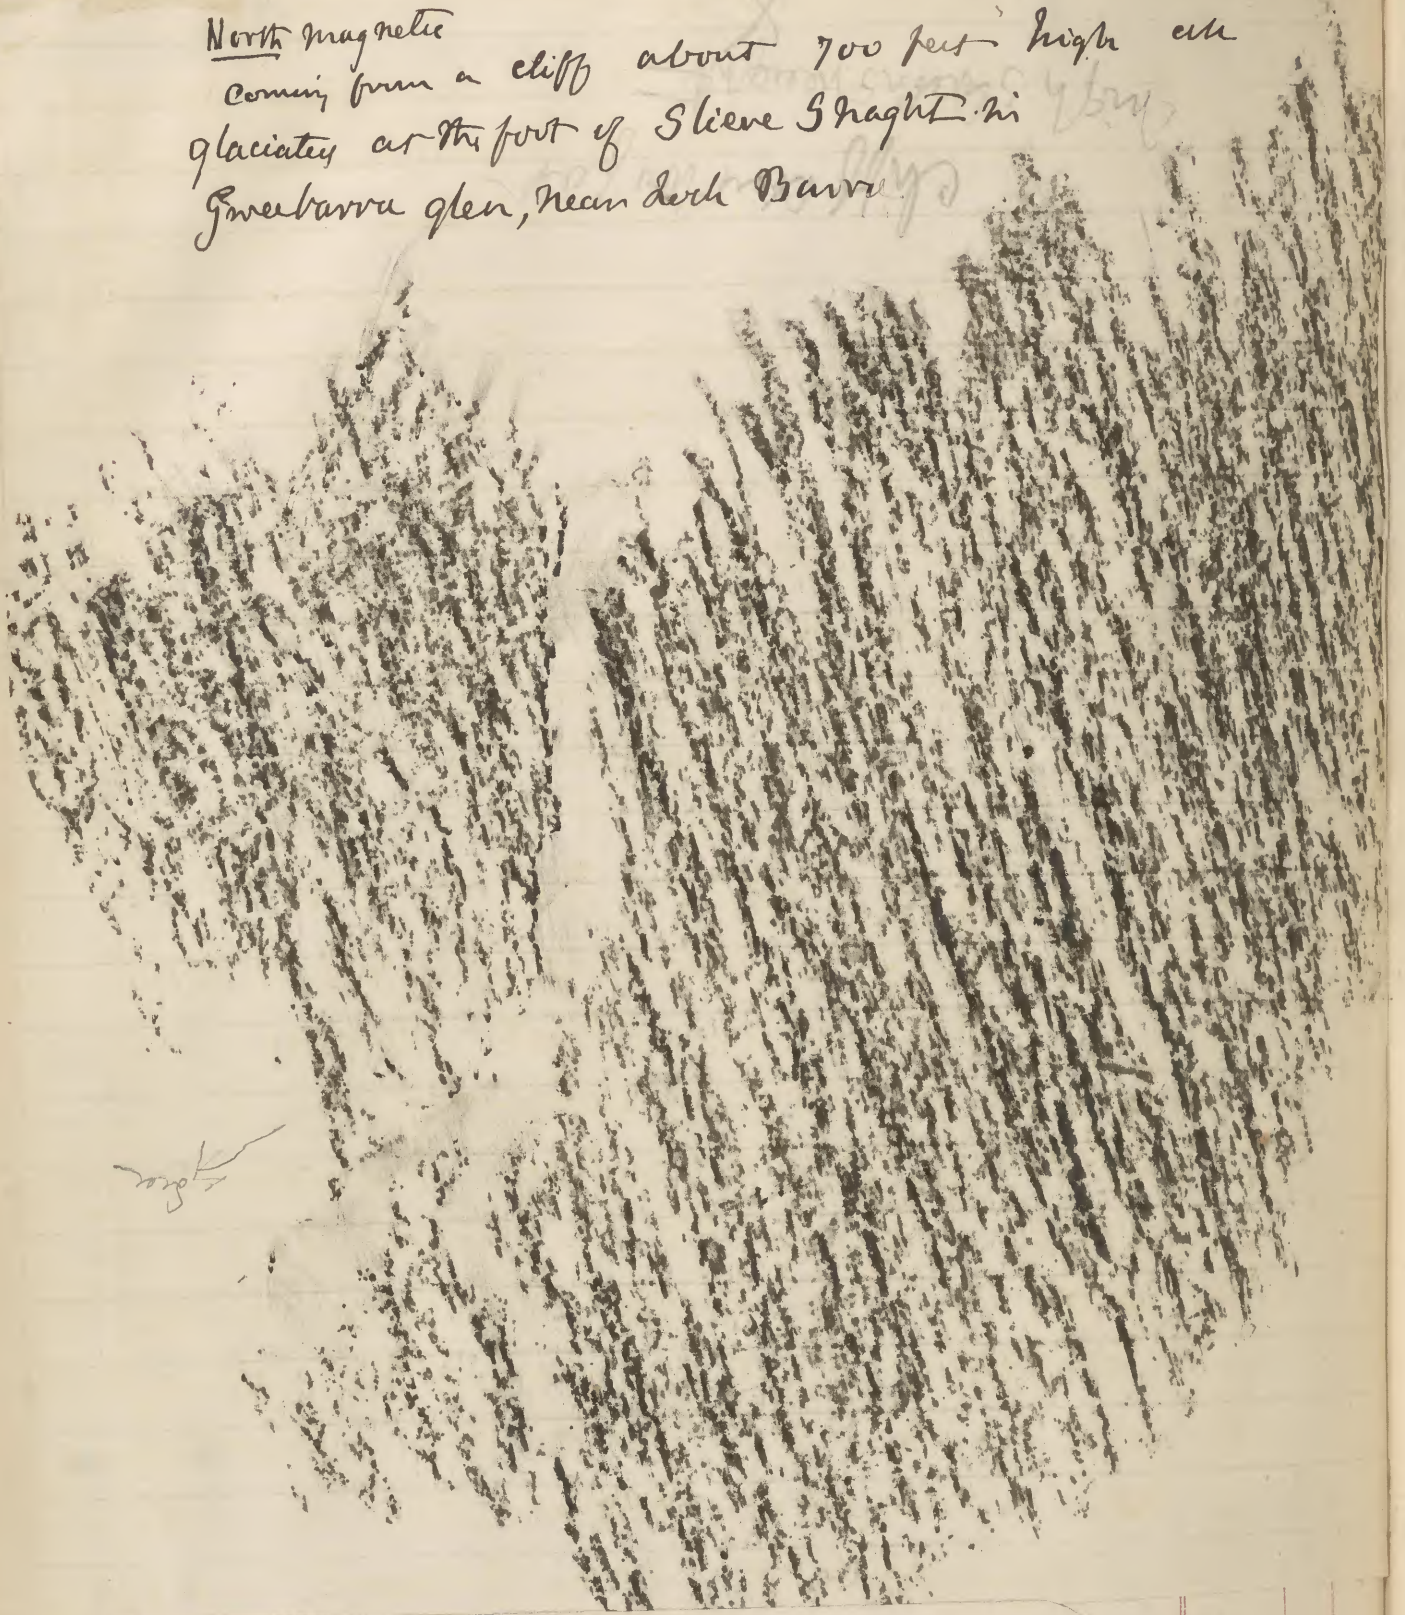 North magnetic
coming from a cliff about 700 feet high all
glaciated at the foot of Slieve Snaght in
Gweebarra glen, near Loch Barra